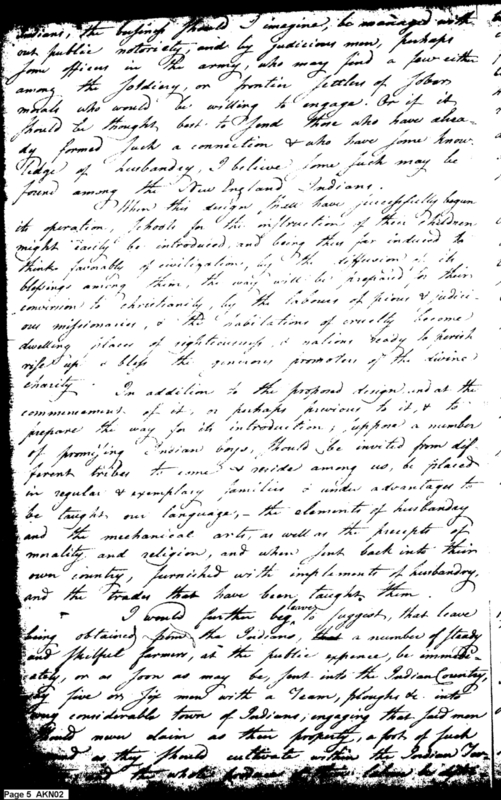 Indians, the business should I imagine, be managed with
out public notoriety, and by judicious men, perhaps
some officers in the army, who may find a few either
among the soldiery, or frontier settlers of sober
morals who would be willing to engage. Or if it
should be thought best to send those who have alrea-
dy formed such a connection & who have some know-
ledge of husbandry, I believe some such may be
found among the New England Indians.
When this design, shall have successfully begun
its operation, schools for the instruction of their children
might easily be introduced, and being thus far induced to
think favorably of civilization, by the diffusion of its
blessings among them, the way will be prepared, for their
conversion to christianity, by the labours of pious & judici-
ous missionaries, & the habitations of cruelty become
dwelling places of righteousness, & nations ready to perish
rise up & bless the generous promoters of the divine
charity.
In addition to the proposed design and at the
commencement of it, or perhaps previous to it, & to
prepare the way for its introduction; suppose a number
of promising Indian boys, should be invited from dif
ferent tribes to come & reside among us, be placed
in regular & exemplary families & under advantages to
be taught our language,- the elements of husbandry
and the mechanical arts, as well as the precepts of
morality and religion, and when sent back into their
own country, furnished with implements of husbandry,
and the trades that have been taught them.
I would further beg leave to suggest, that leave
being obtained from the Indians, that a number of steady
and skilful farmers, at the public expence, be immedi-
ately, or as soon as may be, sent into the Indian Country,
say five or six men with a Team, ploughs &c. into
every considerable town of Indians; engaging that said men
should never claim as their property, a foot of such
land as they should cultivate within the Indian Ter-
and the whole produce of their labour be
Page 5 AKN02